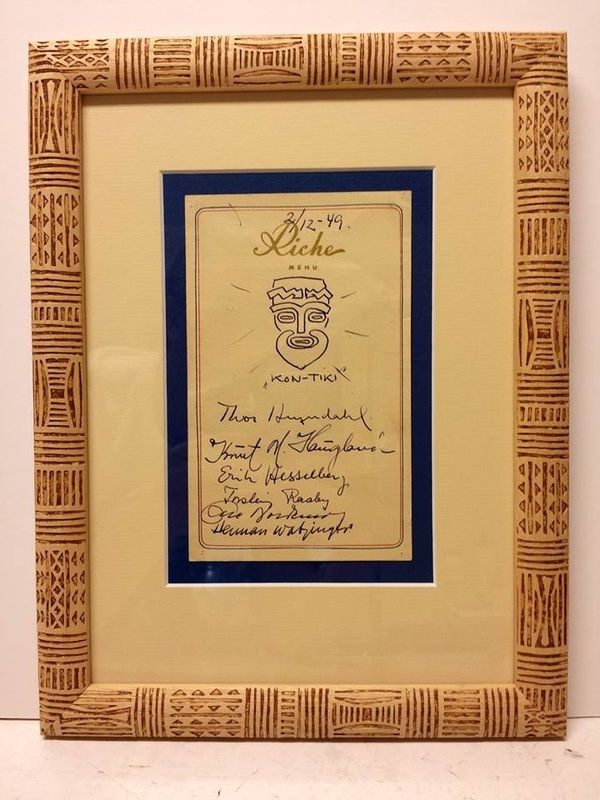 2/12-49.
Riche
MENU
"KON-TIKI"
Thor Heyerdahl.
Knut M. Haugland
Erik Hesselberg
Torstein Raaby
Herman Watzinger